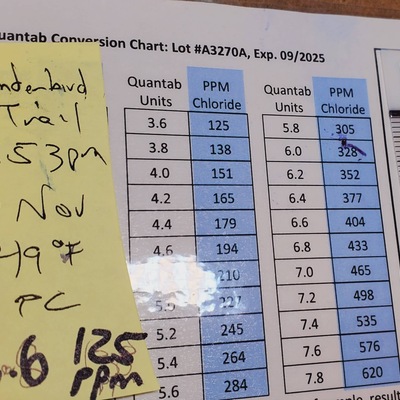 uantab Conversion Chart: Lot #A3270A, Exp. 09/2025
Quantab Units PPM Chloride
3.6 125
3.8 138
4.0 151
4.2 165
4.4 179
4.6 194
210
227
5.2 245
5.4 264
5.6 284
Quantab Units PPM Chloride
5.8 305
6.0 328
6.2 352
6.4 377
6.6 404
6.8 433
7.0 465
7.2 498
7.4 535
7.6 576
7.8 620
nderbird
Trail
53pm
Nov
49°F
PC
6 125 ppm